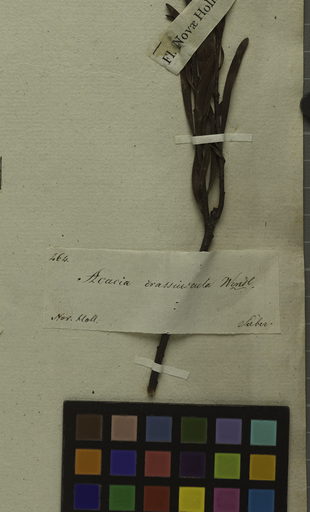 Fl. Novæ Holl
464.
Acacia crassiuscula Wendl.
Nov. Holl.
Sieber.